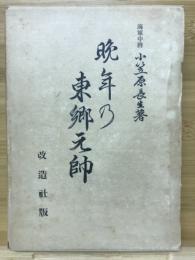 海軍中将 小笠原長生著
晩年の
東郷元帥
改造社版